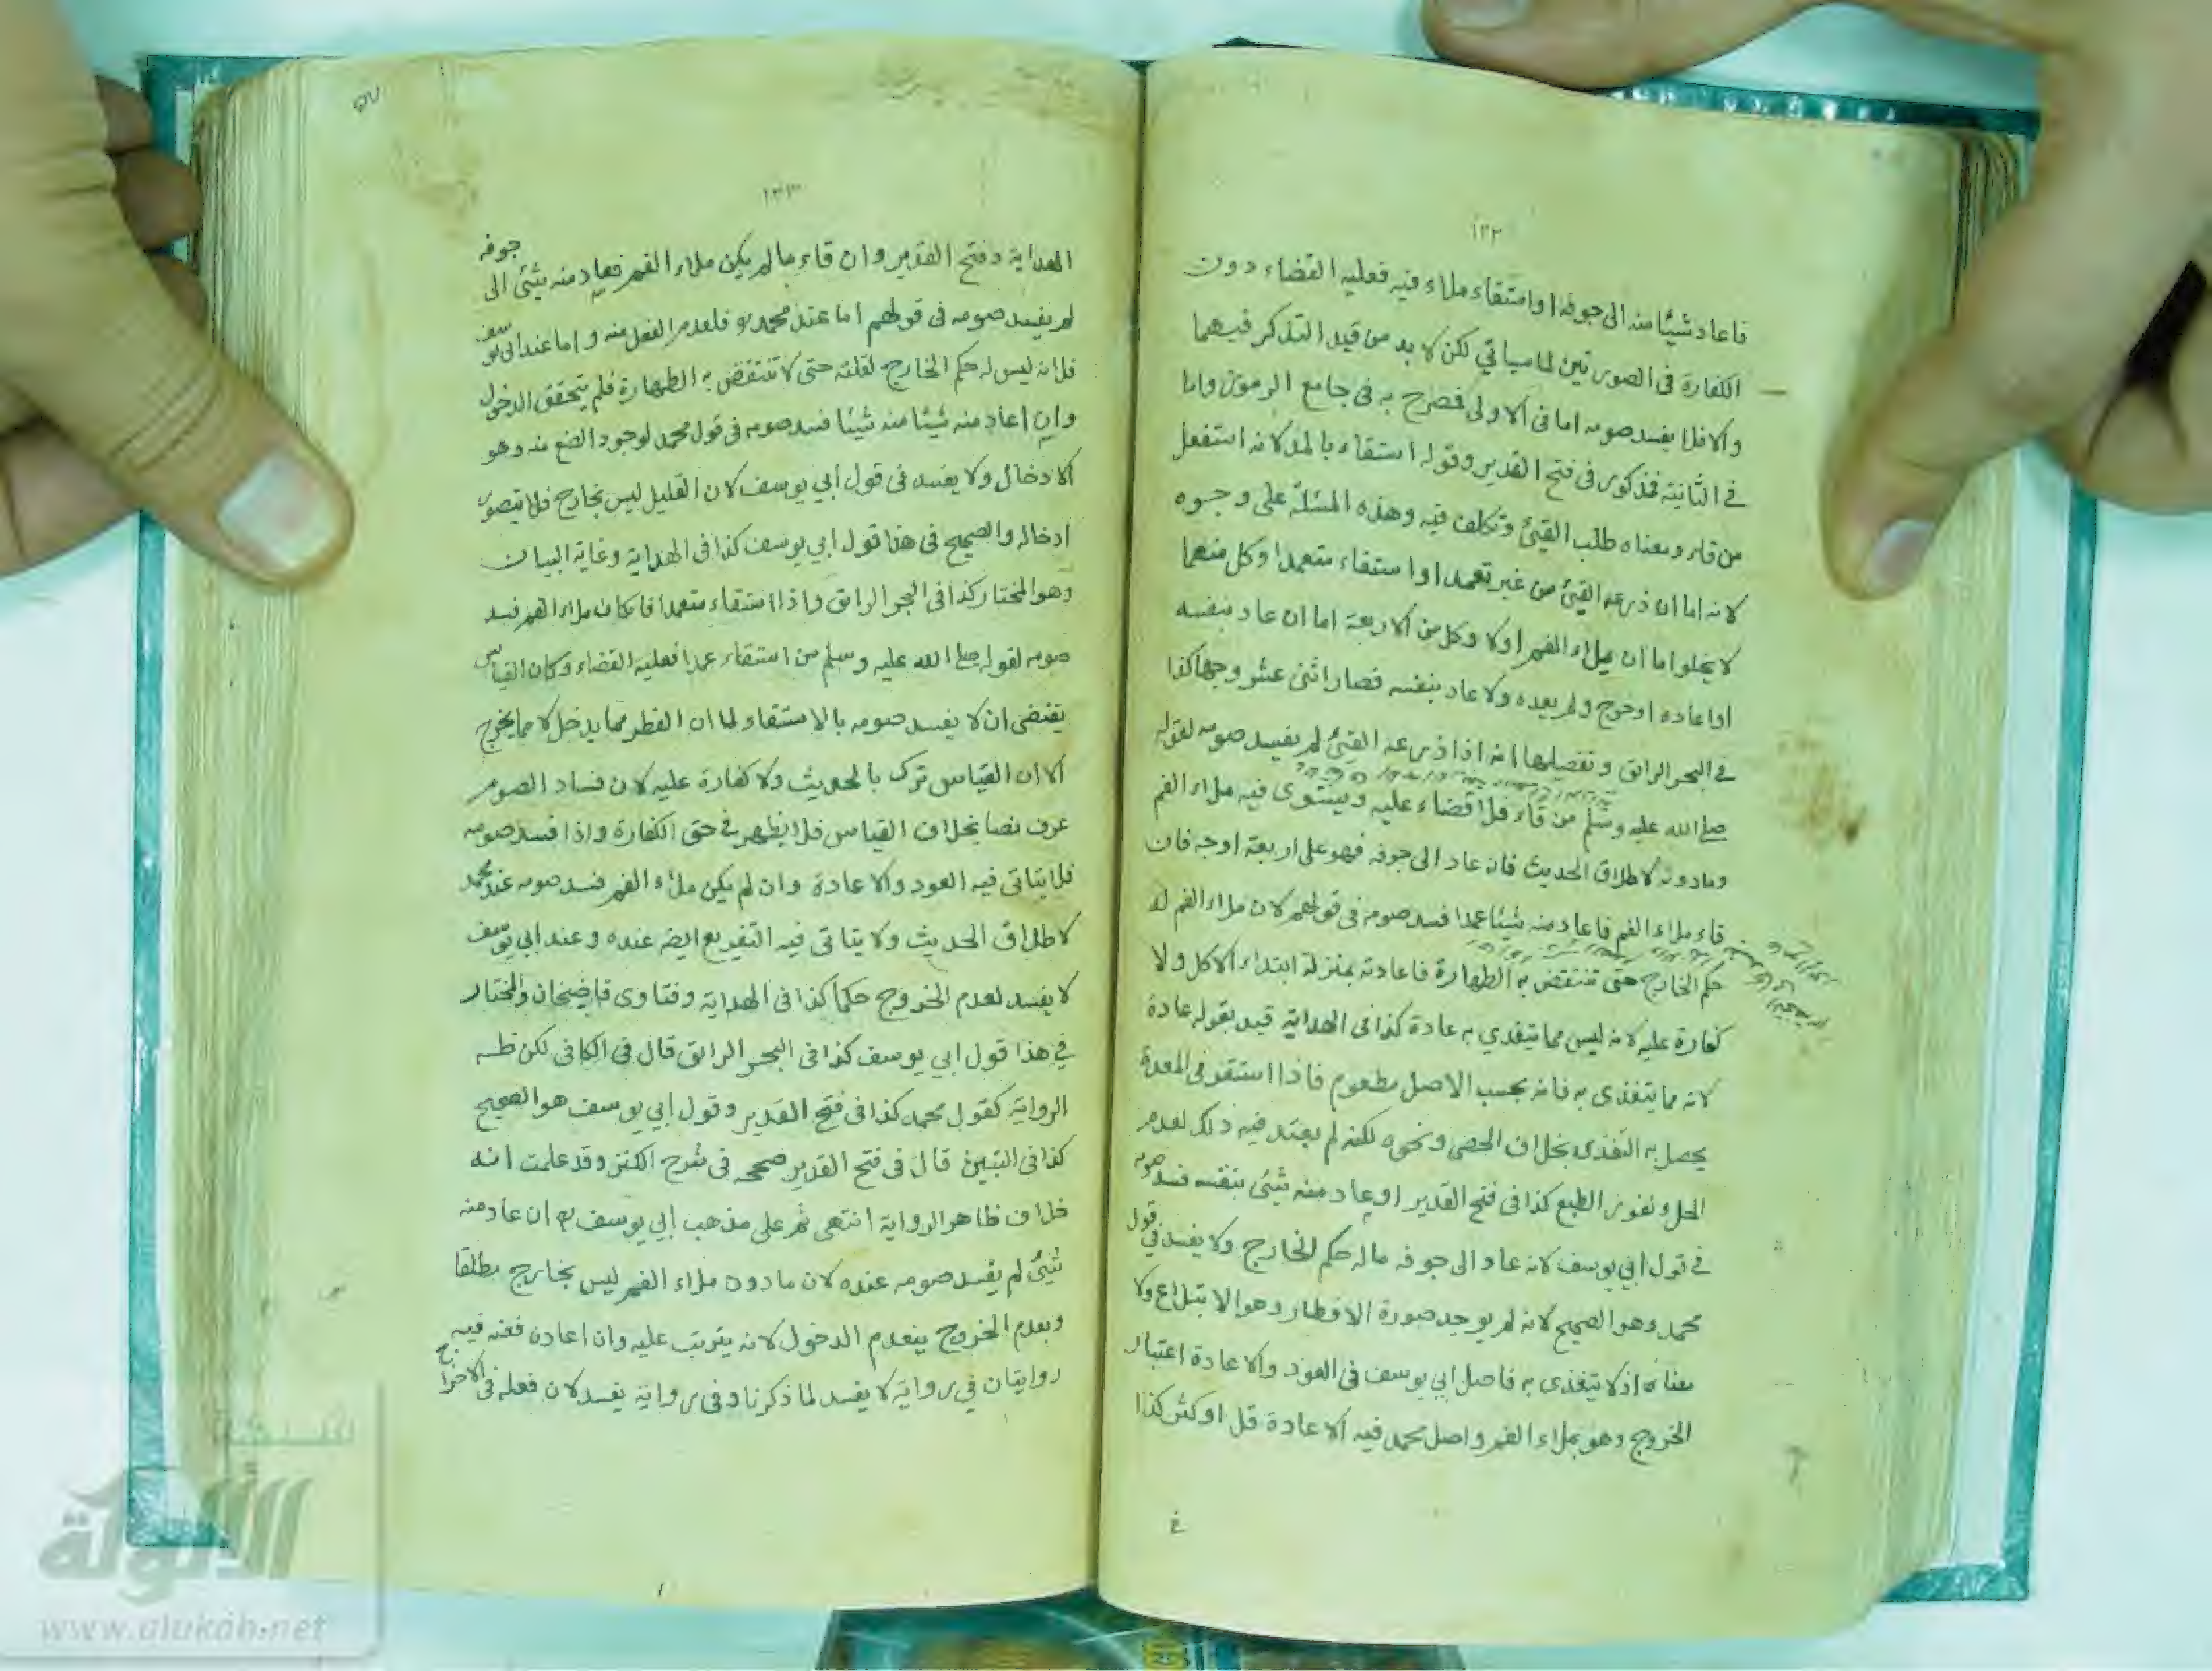 ١٣٢
فاعاد شيئا منه الى جوفه او استقاء ملاء فيه فعليه القضاء دون
الكفارة فى الصورتين لما سياتي لكن لا بد من قيد التذكر فيهما
والا فلا يفسد صومه اما فى الاولى فصرح به فى جامع الرموز واما
في الثانية فمذكور فى فتح القدير وقوله استقاء بالمد لانه استفعل
من قاء ومعناه طلب القيئ وتكلف فيه وهذه المسئلة على وجوه
لانه اما ان ذرعه القيئ من غير تعمد او استقاء متعمدا وكل منهما
لا يخلوا اما ان يملاء الفم او لا وكل من الاربعة اما ان عاد بنفسه
او اعاده او خرج ولم يعده ولا عاد بنفسه فصار اثنى عشر وجها كذا
في البحر الرائق وتفصيلها انه اذا ذرعه القيئ لم يفسد صومه لقوله
صلى الله عليه وسلم من قاء فلا قضاء عليه ويستوى فيه ملاء الفم
وما دونه لاطلاق الحديث فان عاد الى جوفه فهو على اربعة اوجه فان
قاء ملاء الفم فاعاد منه شيئا عمدا فسد صومه فى قولهم لان ملاء الفم له
حكم الخارج حتى تنتقض به الطهارة فاعادته بمنزلة ابتداء الاكل ولا
كفارة عليه لانه ليس مما يتغدي به عادة كذا فى الهداية قيد بقوله عادة
لانه مما يتغذى به فانه بحسب الاصل مطعوم فاذا استقر فى المعدة
يحصل به التغذى بخلاف الحصى ونحوه لكنه لم يعتد فيه ذلك لعدم
الحل ونفور الطبع كذا فى فتح القدير او عاد منه شيئ بنفسه فسد صومه
في قول ابي يوسف لانه عاد الى جوفه ماله حكم الخارج ولا يفسد في قول
محمد وهو الصحيح لانه لم يوجد صورة الافطار وهو الابتلاع ولا
معناه اذ لا يتغذى به فاصل ابي يوسف فى العود والاعادة اعتبار
الخروج وهو بملاء الفم واصل محمد فيه الاعادة قل او كثر كذا
في
٥٧
١٣٣
الهداية وفتح القدير وان قاء ما لم يكن ملاء الفم فعاد منه شيئ الى جوفه
لم يفسد صومه فى قولهم اما عند محمد فلعدم الفعل منه واما عند ابى يوسف
فلانه ليس له حكم الخارج لقلته حتى لا تنتقض به الطهارة فلم يتحقق الدخول
وان اعاد منه شيئا منه شيئا فسد صومه فى قول محمد لوجود الصنع منه وهو
الادخال ولا يفسد فى قول ابي يوسف لان القليل ليس بخارج فلا يتصور
ادخاله والصحيح فى هذا قول ابي يوسف كذا فى الهداية وغاية البيان
وهو المختار كذا فى البحر الرائق واذا استقاء متعمدا فان كان ملاء الفم فسد
صومه لقوله صلى الله عليه وسلم من استقاء عمدا فعليه القضاء وكان القياس
يقتضى ان لا يفسد صومه بالاستقاء لما ان الفطر مما يدخل لا مما يخرج
الا ان القياس ترك بالحديث ولا كفارة عليه لان فساد الصوم
عرف نصا بخلاف القياس فلا يظهر في حق الكفارة واذا فسد صومه
فلا يتاتى فيه العود والاعادة وان لم يكن ملاء الفم فسد صومه عند محمد
لاطلاق الحديث ولا يتاتى فيه التفريع ايضه عنده وعند ابي يوسف
لا يفسد لعدم الخروج حكما كذا فى الهداية وفتاوى قاضيخان والمختار
في هذا قول ابي يوسف كذا فى البحر الرائق قال فى الكافى لكن ظه
الرواية كقول محمد كذا فى فتح القدير وقول ابي يوسف هو الصحيح
كذا فى التبيين قال فى فتح القدير صححه فى شرح الكنز وقد علمت انه
خلاف ظاهر الرواية انتهى ثم على مذهب ابي يوسف ان عاد منه
شيئ لم يفسد صومه عنده لان ما دون ملاء الفم ليس بخارج مطلقا
وبعدم الخروج ينعدم الدخول لانه يترتب عليه وان اعاده فعنه فيه
روايتان في رواية لا يفسد لما ذكرنا وفى رواية يفسد لان فعله فى الاخراج
شبكة
الألوكة
www.alukah.net